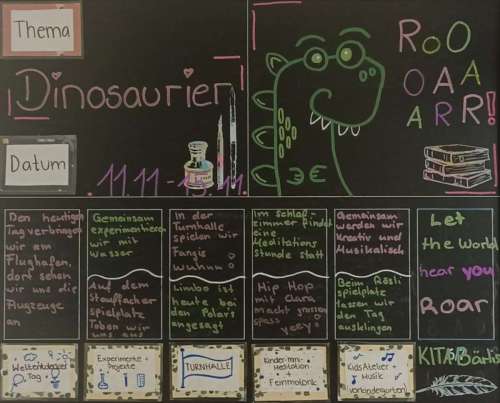 Thema
Dinosaurier
Datum
11.11 -
RoO
OAA
ARR!
Den heutigen
Tag verbringen
wir am
Flughafen,
dort sehen
wir uns die
Flugzeuge
an
Gemeinsam
experimentieren
wir mit
Wasser
Auf dem
Stauffacher
spielplatz
Toben wir
uns aus
In der
Turnhalle
spielen wir
Fangis
wuhuu
Limbo ist
heute bei
den Polaris
angesagt
Im Schlaf-
zimmer findet
eine
Meditations
Stunde statt
Hip Hop
mit Clara
macht grossen
spass
yeey
Gemeinsam
werden wir
Kreativ und
Musikalisch
Beim Rösli
spielplatz
lassen wir
den Tag
ausklingen
Let
the World
hear you
Roar
Weltentdecker
Tag
Experimente +
Projekte
TURNHALLE
Kinder-
+
Feinmotorik
Kids Atelier +
Musik
Vorkindergarten
KITA